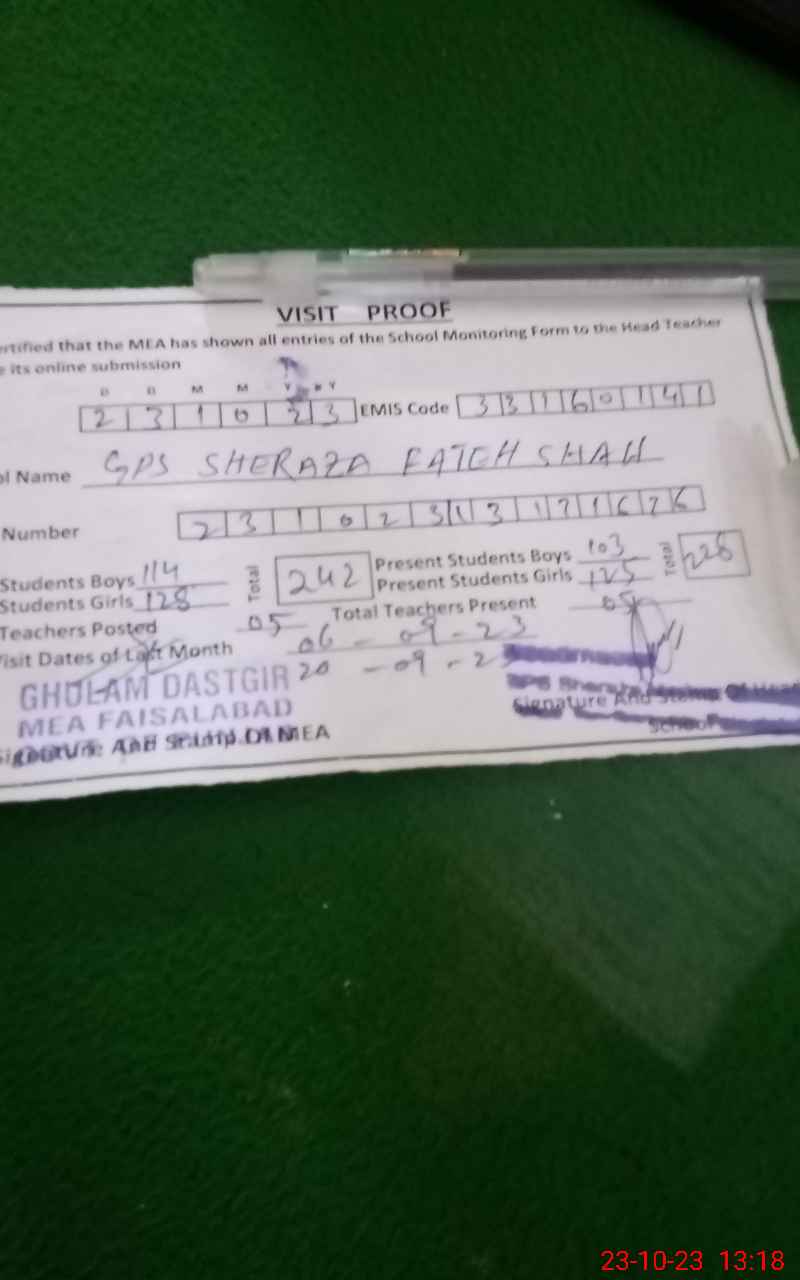 VISIT PROOF
ertified that the MEA has shown all entries of the School Monitoring Form to the Head Teacher
e its online submission
D D M M Y Y
2 3 1 0 2 3 EMIS Code 3 3 1 6 0 1 4 1
ol Name GPS SHERAZA FATEH SHAH
Number 2 3 1 0 2 3 1 3 1 7 1 6 7 6
Students Boys 114 Total 242 Present Students Boys 103 Total 228
Students Girls 128 Present Students Girls 125
Teachers Posted 05 Total Teachers Present 05
isit Dates of Last Month 06 - 09 - 23
20 - 09 - 23
GHULAM DASTGIR
MEA FAISALABAD
Signature And Stamp Of MEA
Signature And Stamp Of Head
School
23-10-23 13:18